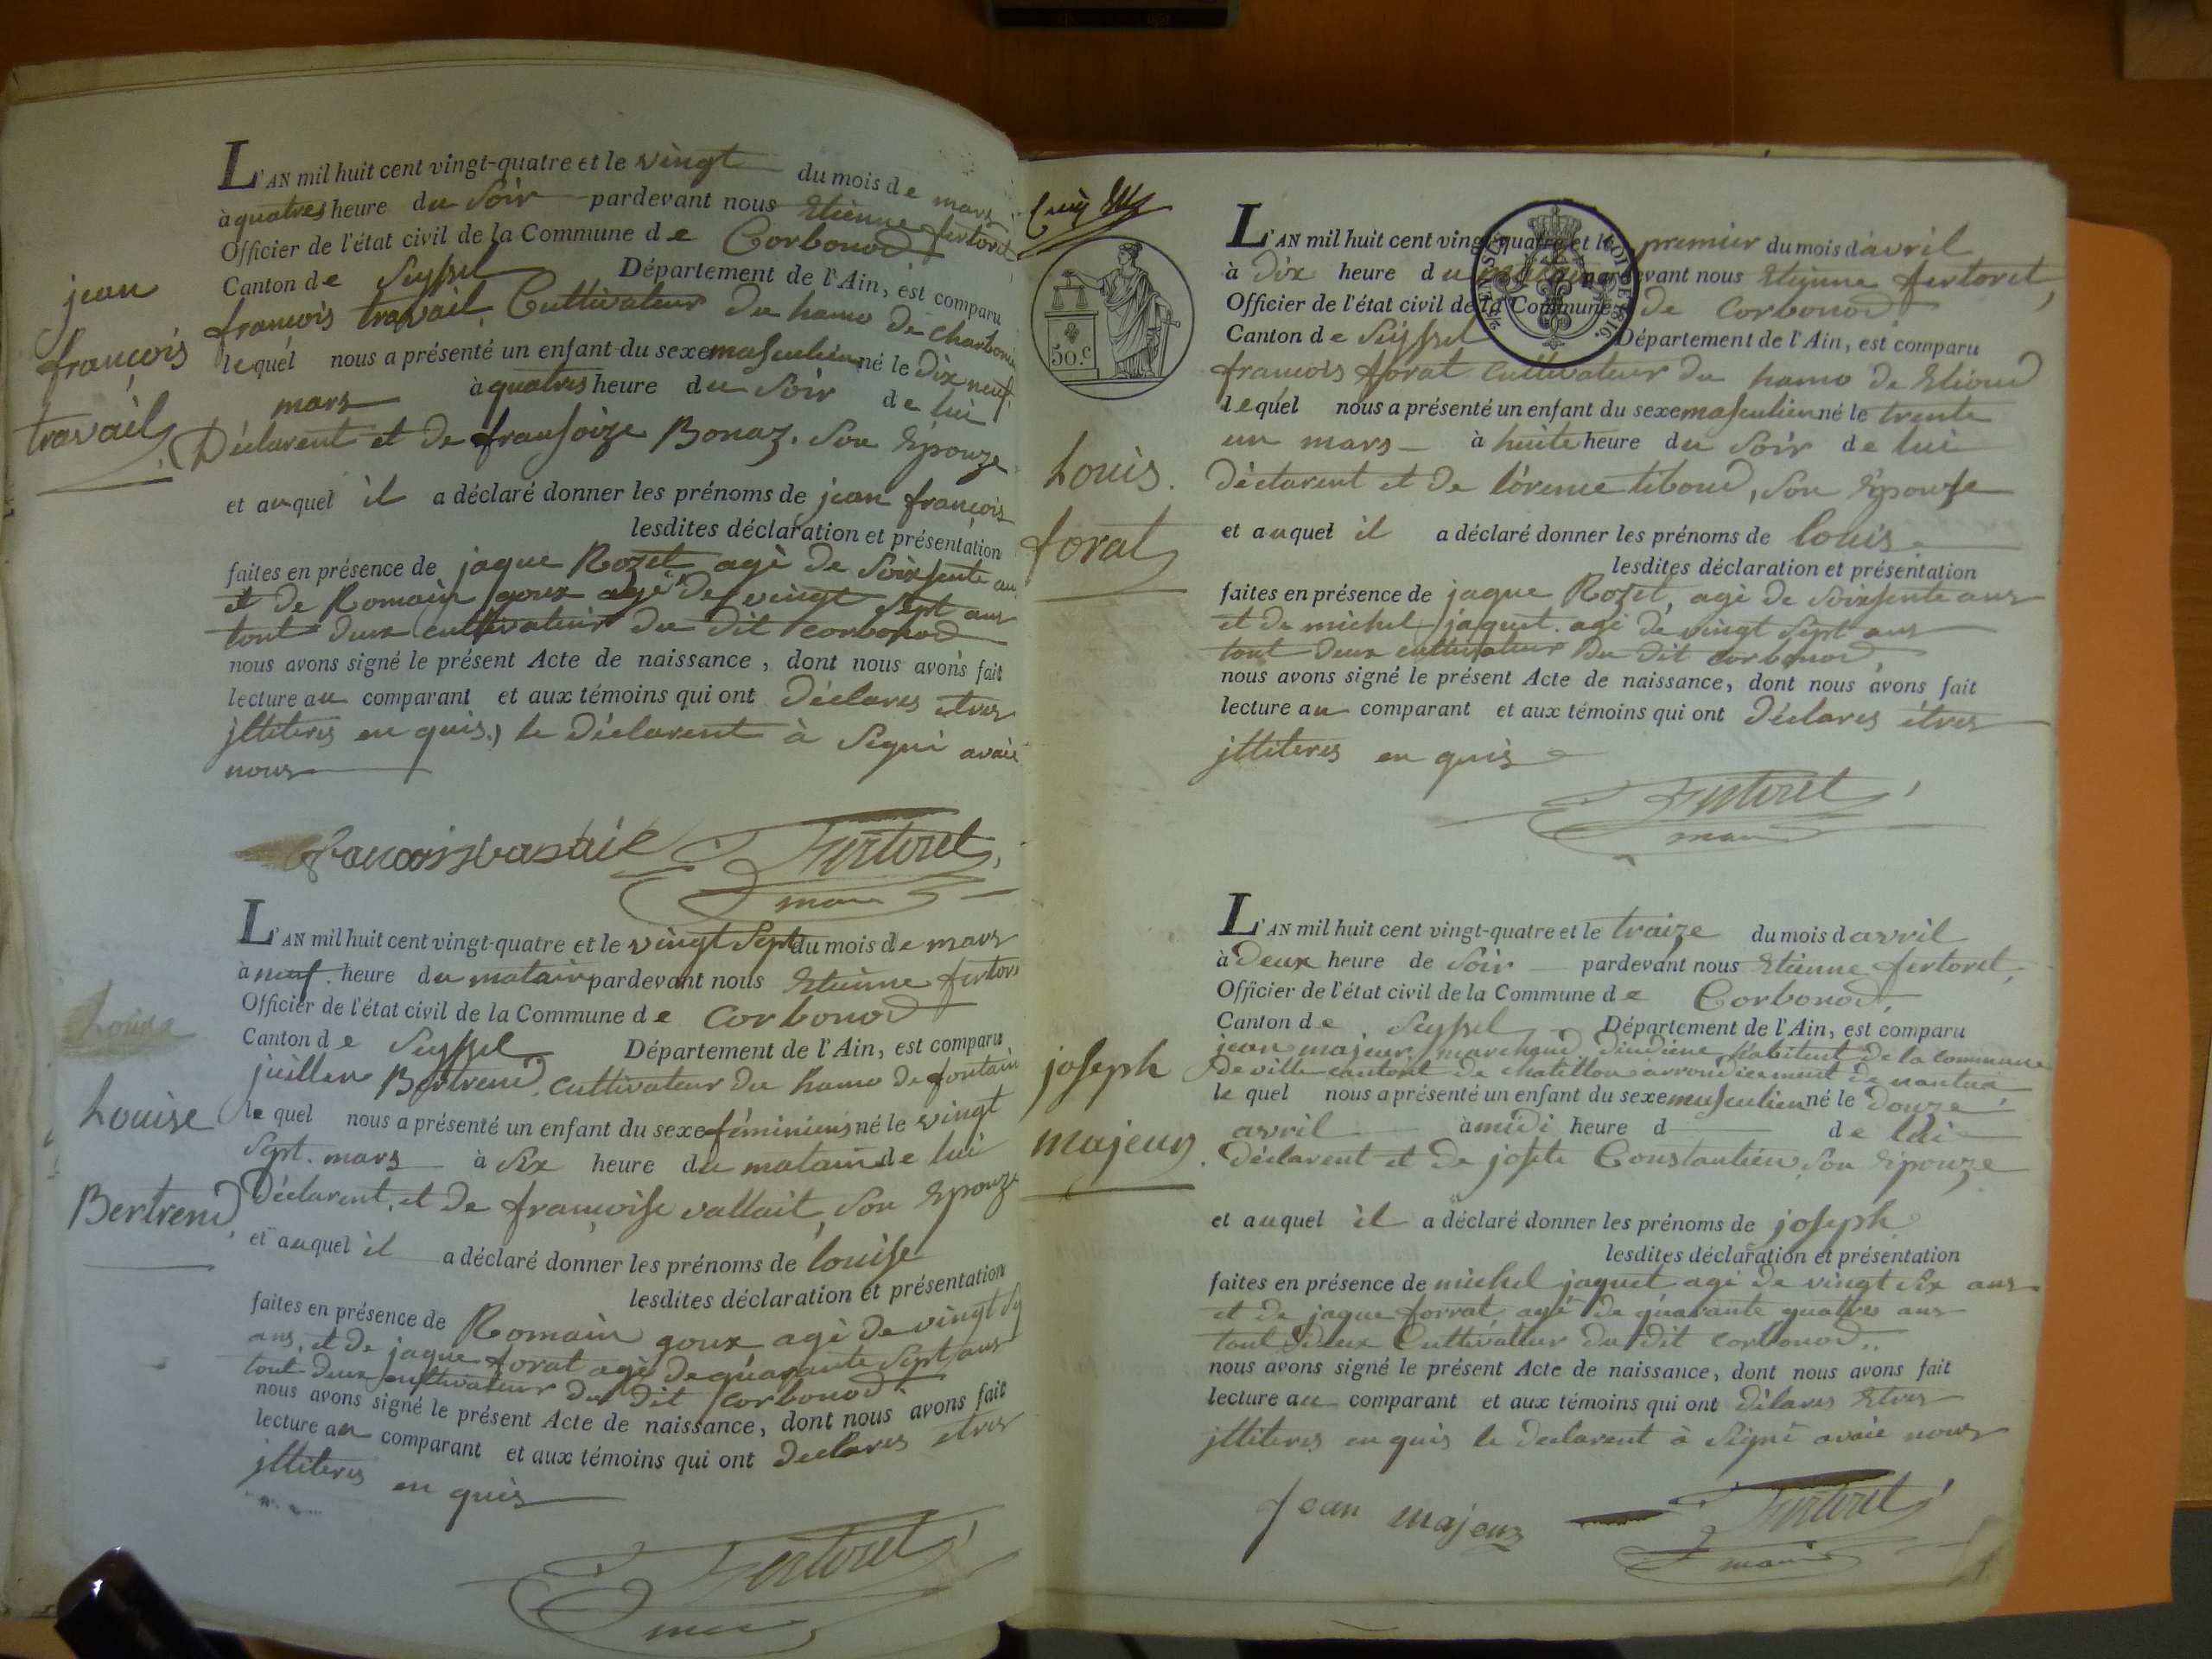 jean
françois
travail
L'AN mil huit cent vingt-quatre et le vingt du mois de mars
à quatres heure du soir pardevant nous Etienne fertoret
Officier de l'état civil de la Commune de Corbonod
Canton de Seyssel Département de l'Ain, est comparu
françois travail Cultivateur du hamo de charbonier
lequel nous a présenté un enfant du sexe masculien né le dix neuf
mars à quatres heure du soir de lui
Déclarent et de fransoize Bonaz. son Epouze
et auquel il a déclaré donner les prénoms de jean françois
lesdites déclaration et présentation
faites en présence de jaque Rozet agè de soixsente an
et de Romain goux agè de vingt sept ans
tout deux cultivateur du dit corbonod
nous avons signé le présent Acte de naissance, dont nous avons fait
lecture au comparant et aux témoins qui ont Déclares etres
jlliteres en quis, le Déclarent à signi avaie
nous
francois travail Fertoret
maire
Louise
Bertrend
L'AN mil huit cent vingt-quatre et le vingt sept du mois de mars
à neuf heure du matain pardevant nous Etienne fertore
Officier de l'état civil de la Commune de Corbonod
Canton de Seyssel Département de l'Ain, est comparu
juillen Bertrend, cultivateur du hamo de fontain
le quel nous a présenté un enfant du sexe féminiens né le vingt
sept. mars à six heure du matain de lui
Déclarent, et de françoise vallait, son Epouze
et auquel il a déclaré donner les prénoms de louise
lesdites déclaration et présentation
faites en présence de Romain goux agè de vingt
ans, et de jaque forat agè de quarante sept ans
tout deux cultivateur du dit corbonod.
nous avons signé le présent Acte de naissance, dont nous avons fait
lecture au comparant et aux témoins qui ont Declares etres
jlliteres en quis
Fertoret
maire
50.c
Louis.
forat
L'AN mil huit cent vingt-quatre et le premier du mois d'avril
à Dix heure du matain pardevant nous Etienne fertoret,
Officier de l'état civil de la Commune de Corbonod
Canton de Seyssel Département de l'Ain, est comparu
francois forat cultivateur du hamo de Elioud
lequel nous a présenté un enfant du sexe masculien né le trente
un mars à huite heure du soir de lui
déclarent et de lorence liboud, son Epouse
et auquel il a déclaré donner les prénoms de louis
lesdites déclaration et présentation
faites en présence de jaque Rozet, agè de soixsente ans
et de michel jaquet. agè de vingt sept ans
tout deux cultivateur du dit corbonod,
nous avons signé le présent Acte de naissance, dont nous avons fait
lecture au comparant et aux témoins qui ont Déclares étres
jlliteres en quis
Fertoret
maire
joseph
majeur.
L'AN mil huit cent vingt-quatre et le traize du mois d avril
à Deux heure de soir pardevant nous Etienne fertoret,
Officier de l'état civil de la Commune de Corbonod,
Canton de Seyssel Département de l'Ain, est comparu
jean majeur, marchand d'indiene habitent de la commune
de ville cantont de chatillon arrondicement de nantua
le quel nous a présenté un enfant du sexe masculien né le Douze
avril à midi heure d de lui
déclarent et de josete Constantien, son Epouze
et auquel il a déclaré donner les prénoms de joseph
lesdites déclaration et présentation
faites en présence de michel jaquet agè de vingt six ans
et de jaque forrat agé de quarante quatres ans
tout deux Cultivateur du dit corbonod.
nous avons signé le présent Acte de naissance, dont nous avons fait
lecture au comparant et aux témoins qui ont Délares Etres
jlliteres en quis le declarent à signi avaie nous
jean majeur Fertoret
maire